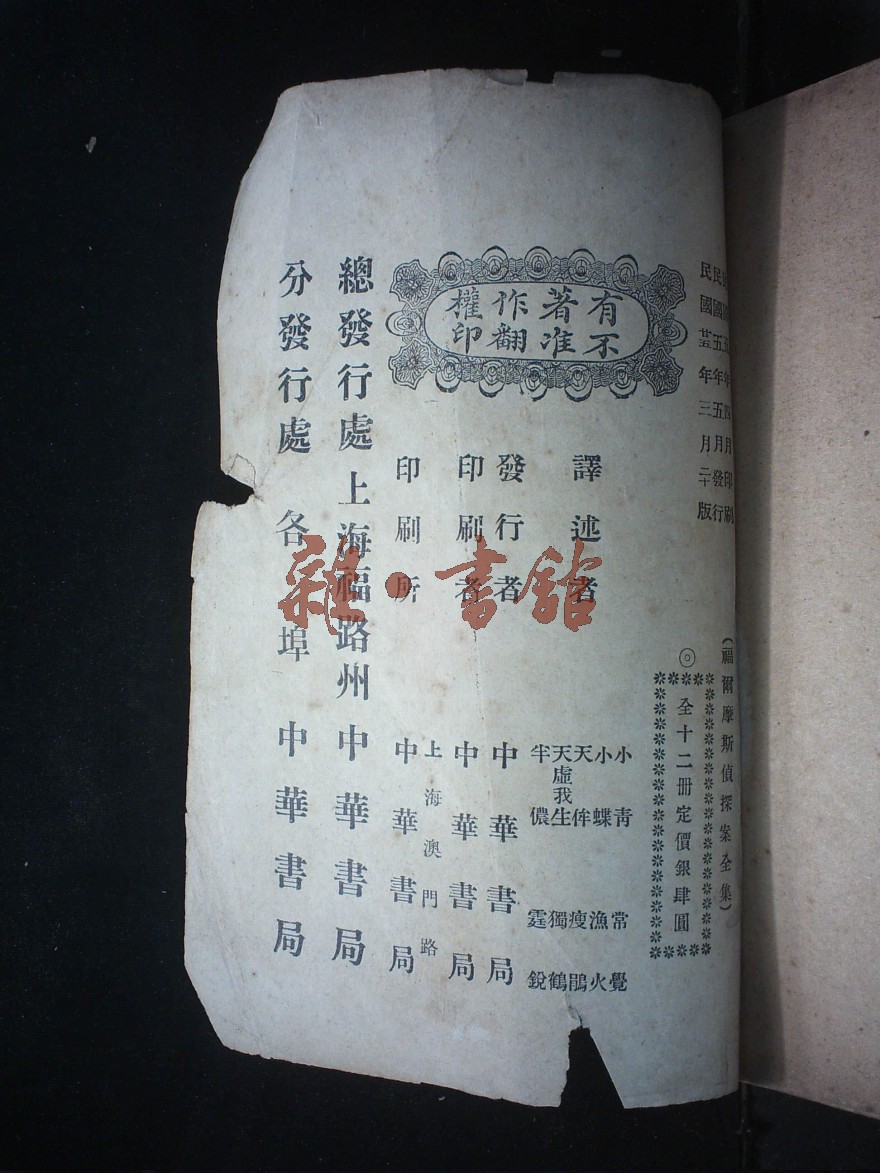 民國五年四月印刷
民國五年五月發行
民國廿五年三月二十版
(福爾摩斯偵探案全集)
◎全十二冊定價銀肆圓
有著作權
不准翻印
譯述者 小青 常覺
小蝶 漁火
天侔 瘦鵑
天虛我生 獨鶴
半儂 霆銳
發行者 中華書局
印刷者 中華書局
印刷所 上海澳門路 中華書局
總發行處 上海福路州 中華書局
分發行處 各埠 中華書局
雜·書館